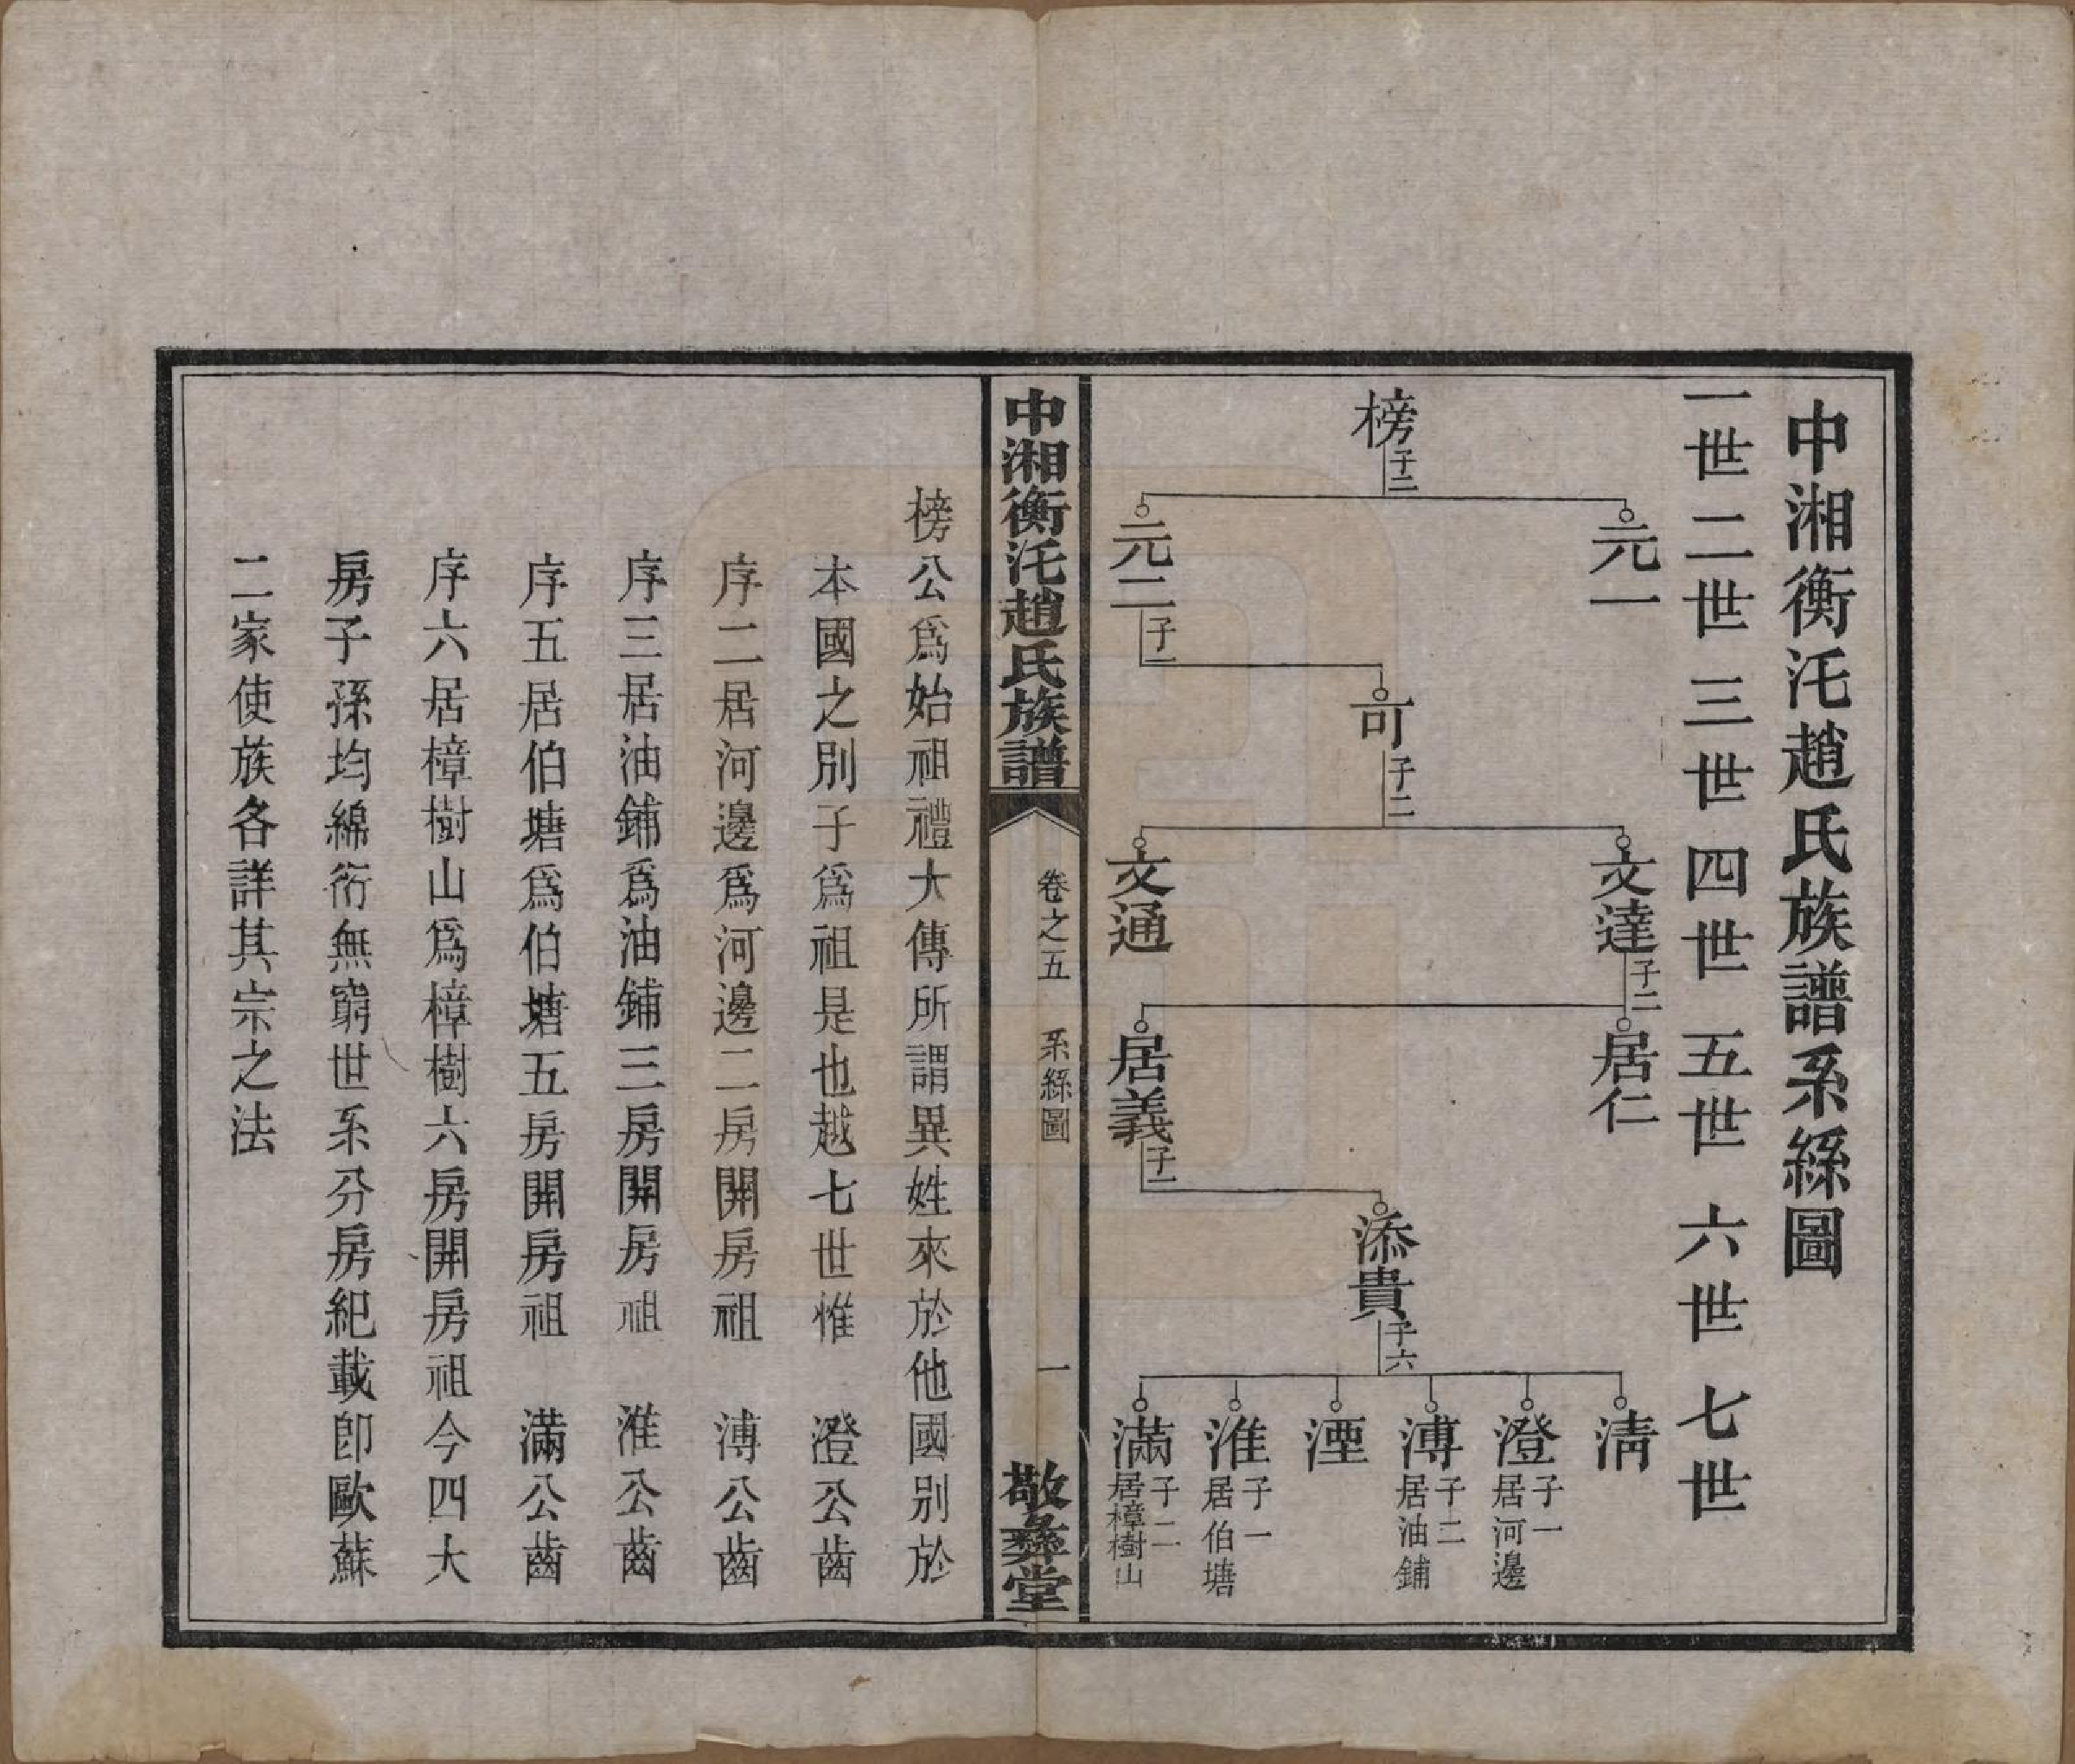 中湘衡汑趙氏族譜系綜圖
一世 二世 三世 四世 五世 六世 七世
榜 子二
元一
元二 子一
可 子二
文達 子二
文通
居仁
居義 子一
添貴 子六
清
澄 子一 居河邊
溥 子二 居油鋪
湮
淮 子一 居伯塘
滿 子二 居樟樹山
中湘衡汑趙氏族譜 卷之五 系綜圖 一 敬彝堂
榜公爲始祖禮大傳所謂異姓來於他國別於
本國之別子爲祖是也越七世惟 澄公齒
序二居河邊爲河邊二房開房祖 溥公齒
序三居油鋪爲油鋪三房開房祖 淮公齒
序五居伯塘爲伯塘五房開房祖 滿公齒
序六居樟樹山爲樟樹六房開房祖今四大
房子孫均綿衍無窮世系分房紀載卽歐蘇
二家使族各詳其宗之法